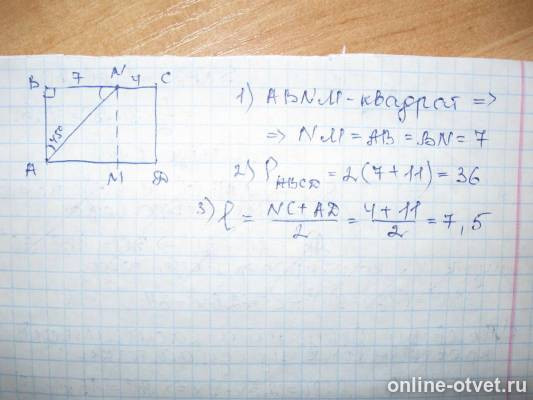 B 7 N 4 C
45°
A M D
1) ABNM - квадрат =>
=> NM = AB = BN = 7
2) P ABCD = 2(7+11) = 36
3) l = NC+AD / 2 = 4+11 / 2 = 7,5
online-otvet.ru